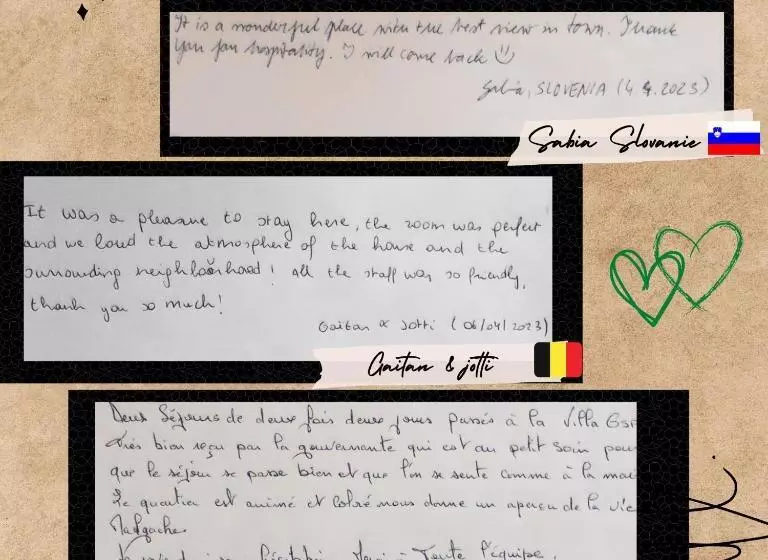 It is a wonderful place with the best view in town. Thank
you for hospitality. I will come back
Sabia, SLOVENIA (4 4.2023)
Sabia Slovanie
It was a pleasure to stay here, the room was perfect
and we loud the atmosphere of the house and the
surrounding neighboorhood! All the staff was so friendly,
thank you so much!
Gaitan & Jotti (06/04/2023)
Gaitan & jotti
Deux Séjours de deux fois deux jours passés à la Villa
Très bien reçu par la gouvernante qui est au petit soin pour
que le séjour se passe bien et que l'on se sente comme à la mai
Le quartier est animé et coloré nous donne un aperçu de la vie
Malgache.
Merci à Toute l'équipe.